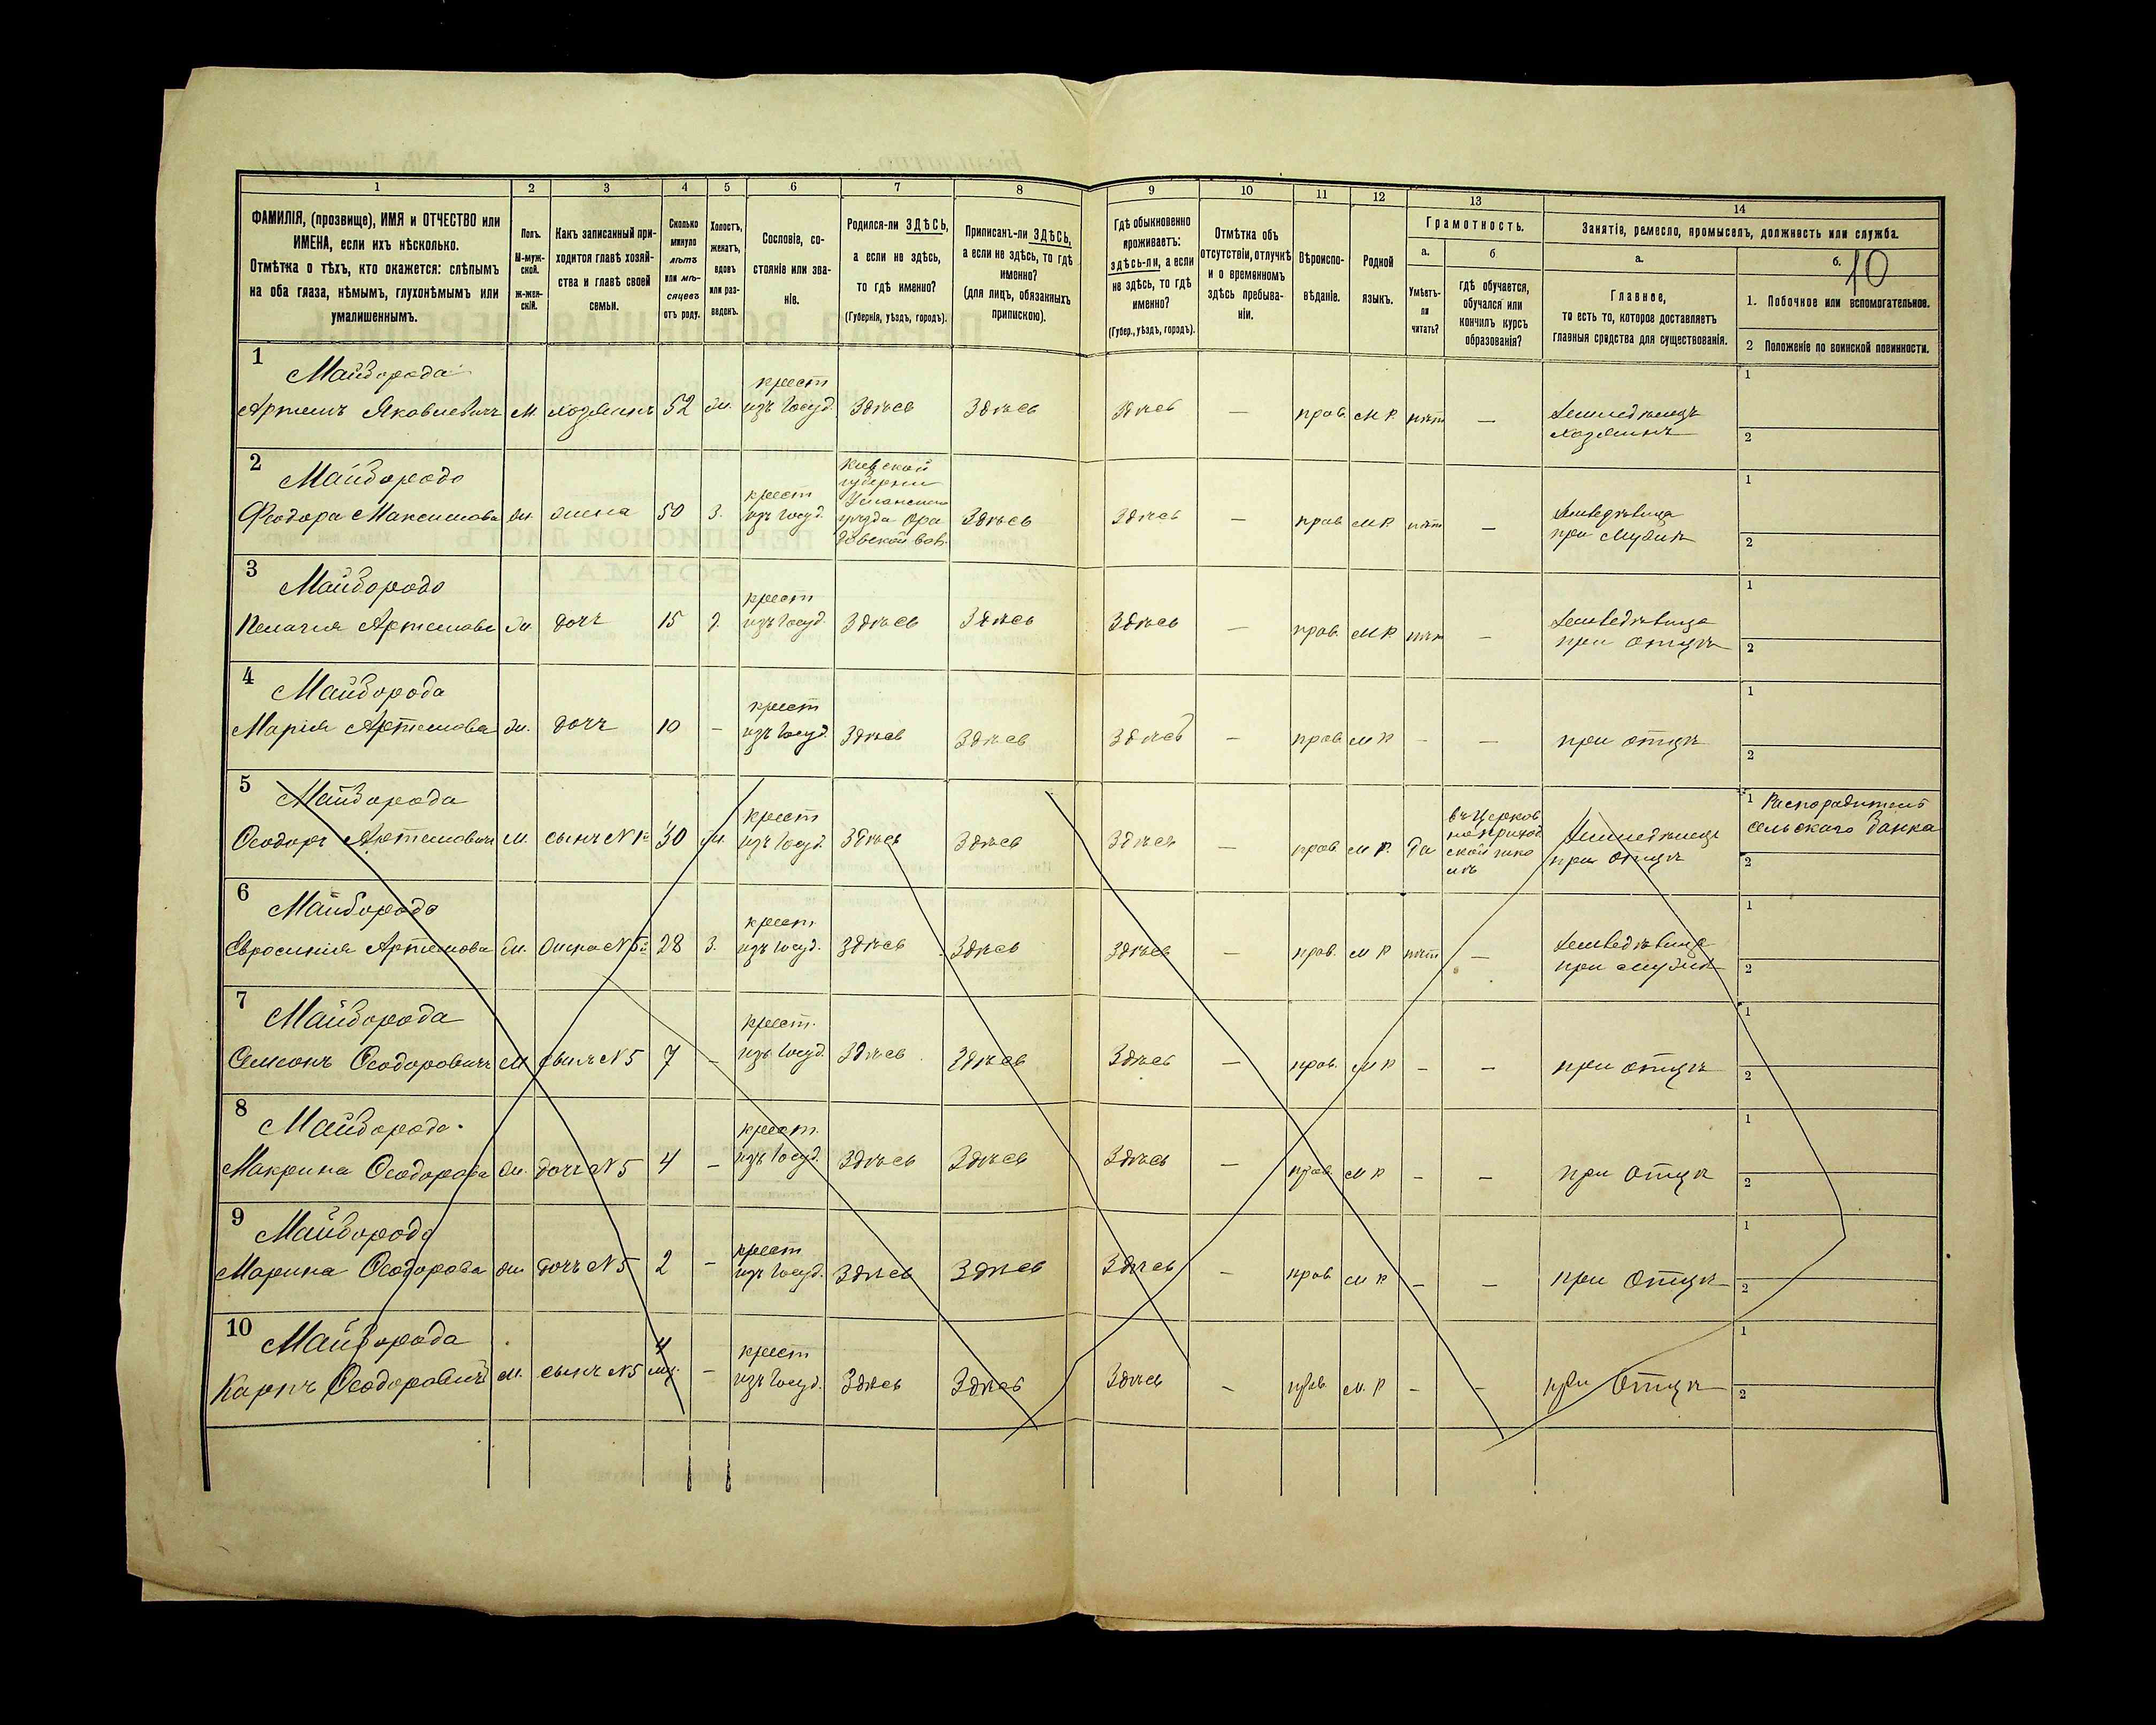 1 2 3 4 5 6 7 8 9 10 11 12 13 14
ФАМИЛІЯ, (прозвище), ИМЯ и ОТЧЕСТВО или
ИМЕНА, если ихъ нѣсколько.
Отмѣтка о тѣхъ, кто окажется: слѣпымъ
на оба глаза, нѣмымъ, глухонѣмымъ или
умалишеннымъ.
Полъ.
М-муж-
ской.
Ж-жен-
скій.
Какъ записанный при-
ходится главѣ хозяй-
ства и главѣ своей
семьи.
Сколько
минуло
лѣтъ
или мѣ-
сяцевъ
отъ роду.
Холостъ,
женатъ,
вдовъ
или раз-
веденъ.
Сословіе, со-
стояніе или зва-
ніе.
Родился-ли ЗДѢСЬ,
а если не здѣсь,
то гдѣ именно?
(Губернія, уѣздъ, городъ).
Приписанъ-ли ЗДѢСЬ,
а если не здѣсь, то гдѣ
именно?
(для лицъ, обязанныхъ
припискою).
Гдѣ обыкновенно
проживаетъ:
здѣсь-ли, а если
не здѣсь, то гдѣ
именно?
(Губер., уѣздъ, городъ).
Отмѣтка объ
отсутствіи, отлучкѣ
и о временномъ
здѣсь пребыва-
ніи.
Вѣроиспо-
вѣданіе.
Родной
языкъ.
Грамотность.
а.
Умѣетъ-
ли
читать?
б
гдѣ обучается,
обучался или
кончилъ курсъ
образованія?
Занятіе, ремесло, промыселъ, должность или служба.
а.
Главное,
то есть то, которое доставляетъ
главныя средства для существованія.
б.
10
1. Побочное или вспомогательное.
2 Положеніе по воинской повинности.
1
Майборода крест
Артемъ Яковлевичъ М. хозяинъ 52 ж. изъ госуд. Здѣсь Здѣсь Здѣсь — прав. м. р. нѣт — земледѣлецъ
хозяинъ
1
2
2
Майборода
Феодора Максимова ж. жена 50 з. крест
изъ госуд.
Киевской
губернии
Уманскаго
уѣзда
Здѣсь Здѣсь — прав. м. р. нѣт — земледѣлица
при мужѣ
1
2
3
Майборода крест
Пелагия Артемова ж. дочь 15 д. изъ госуд. Здѣсь Здѣсь Здѣсь — прав. м. р. нѣт — земледѣлица
при отцѣ
1
2
4
Майборода крест
Марія Артемова ж. дочь 10 — изъ госуд. Здѣсь Здѣсь Здѣсь — прав. м р — — при отцѣ
1
2
5
Майборода крест
Ѳеодоръ Артемовичъ м. сынъ №1й 30 ж. изъ госуд. Здѣсь Здѣсь Здѣсь — прав. м р. да
въ церков
но приход
ской шко
лѣ
земледѣлецъ
при отцѣ
1 Распорядитель
сельского банка
2
6
Майборода крест
Евросинія Артемова ж. жена №5й 28 з. изъ госуд. Здѣсь Здѣсь Здѣсь — прав. м р нѣт — земледѣлица
при мужѣ
1
2
7
Майборода крест.
Самсонъ Ѳеодоровичъ м сынъ №5 7 — изъ госуд. Здѣсь Здѣсь Здѣсь — прав. м р — — при отцѣ
1
2
8
Майборода крест.
Макрина Ѳеодорова ж. дочь №5 4 — изъ госуд. Здѣсь Здѣсь Здѣсь — прав. м р — — при отцѣ
1
2
9
Майборода крест
Марина Ѳеодорова ж дочь №5 2 — изъ госуд. Здѣсь Здѣсь Здѣсь — прав м р — — при отцѣ
1
2
10
Майборода 4 крест
Карпъ Ѳеодоровичъ м. сынъ №5 мц. — изъ госуд. Здѣсь Здѣсь Здѣсь — прав м. р — — при отцѣ
1
2